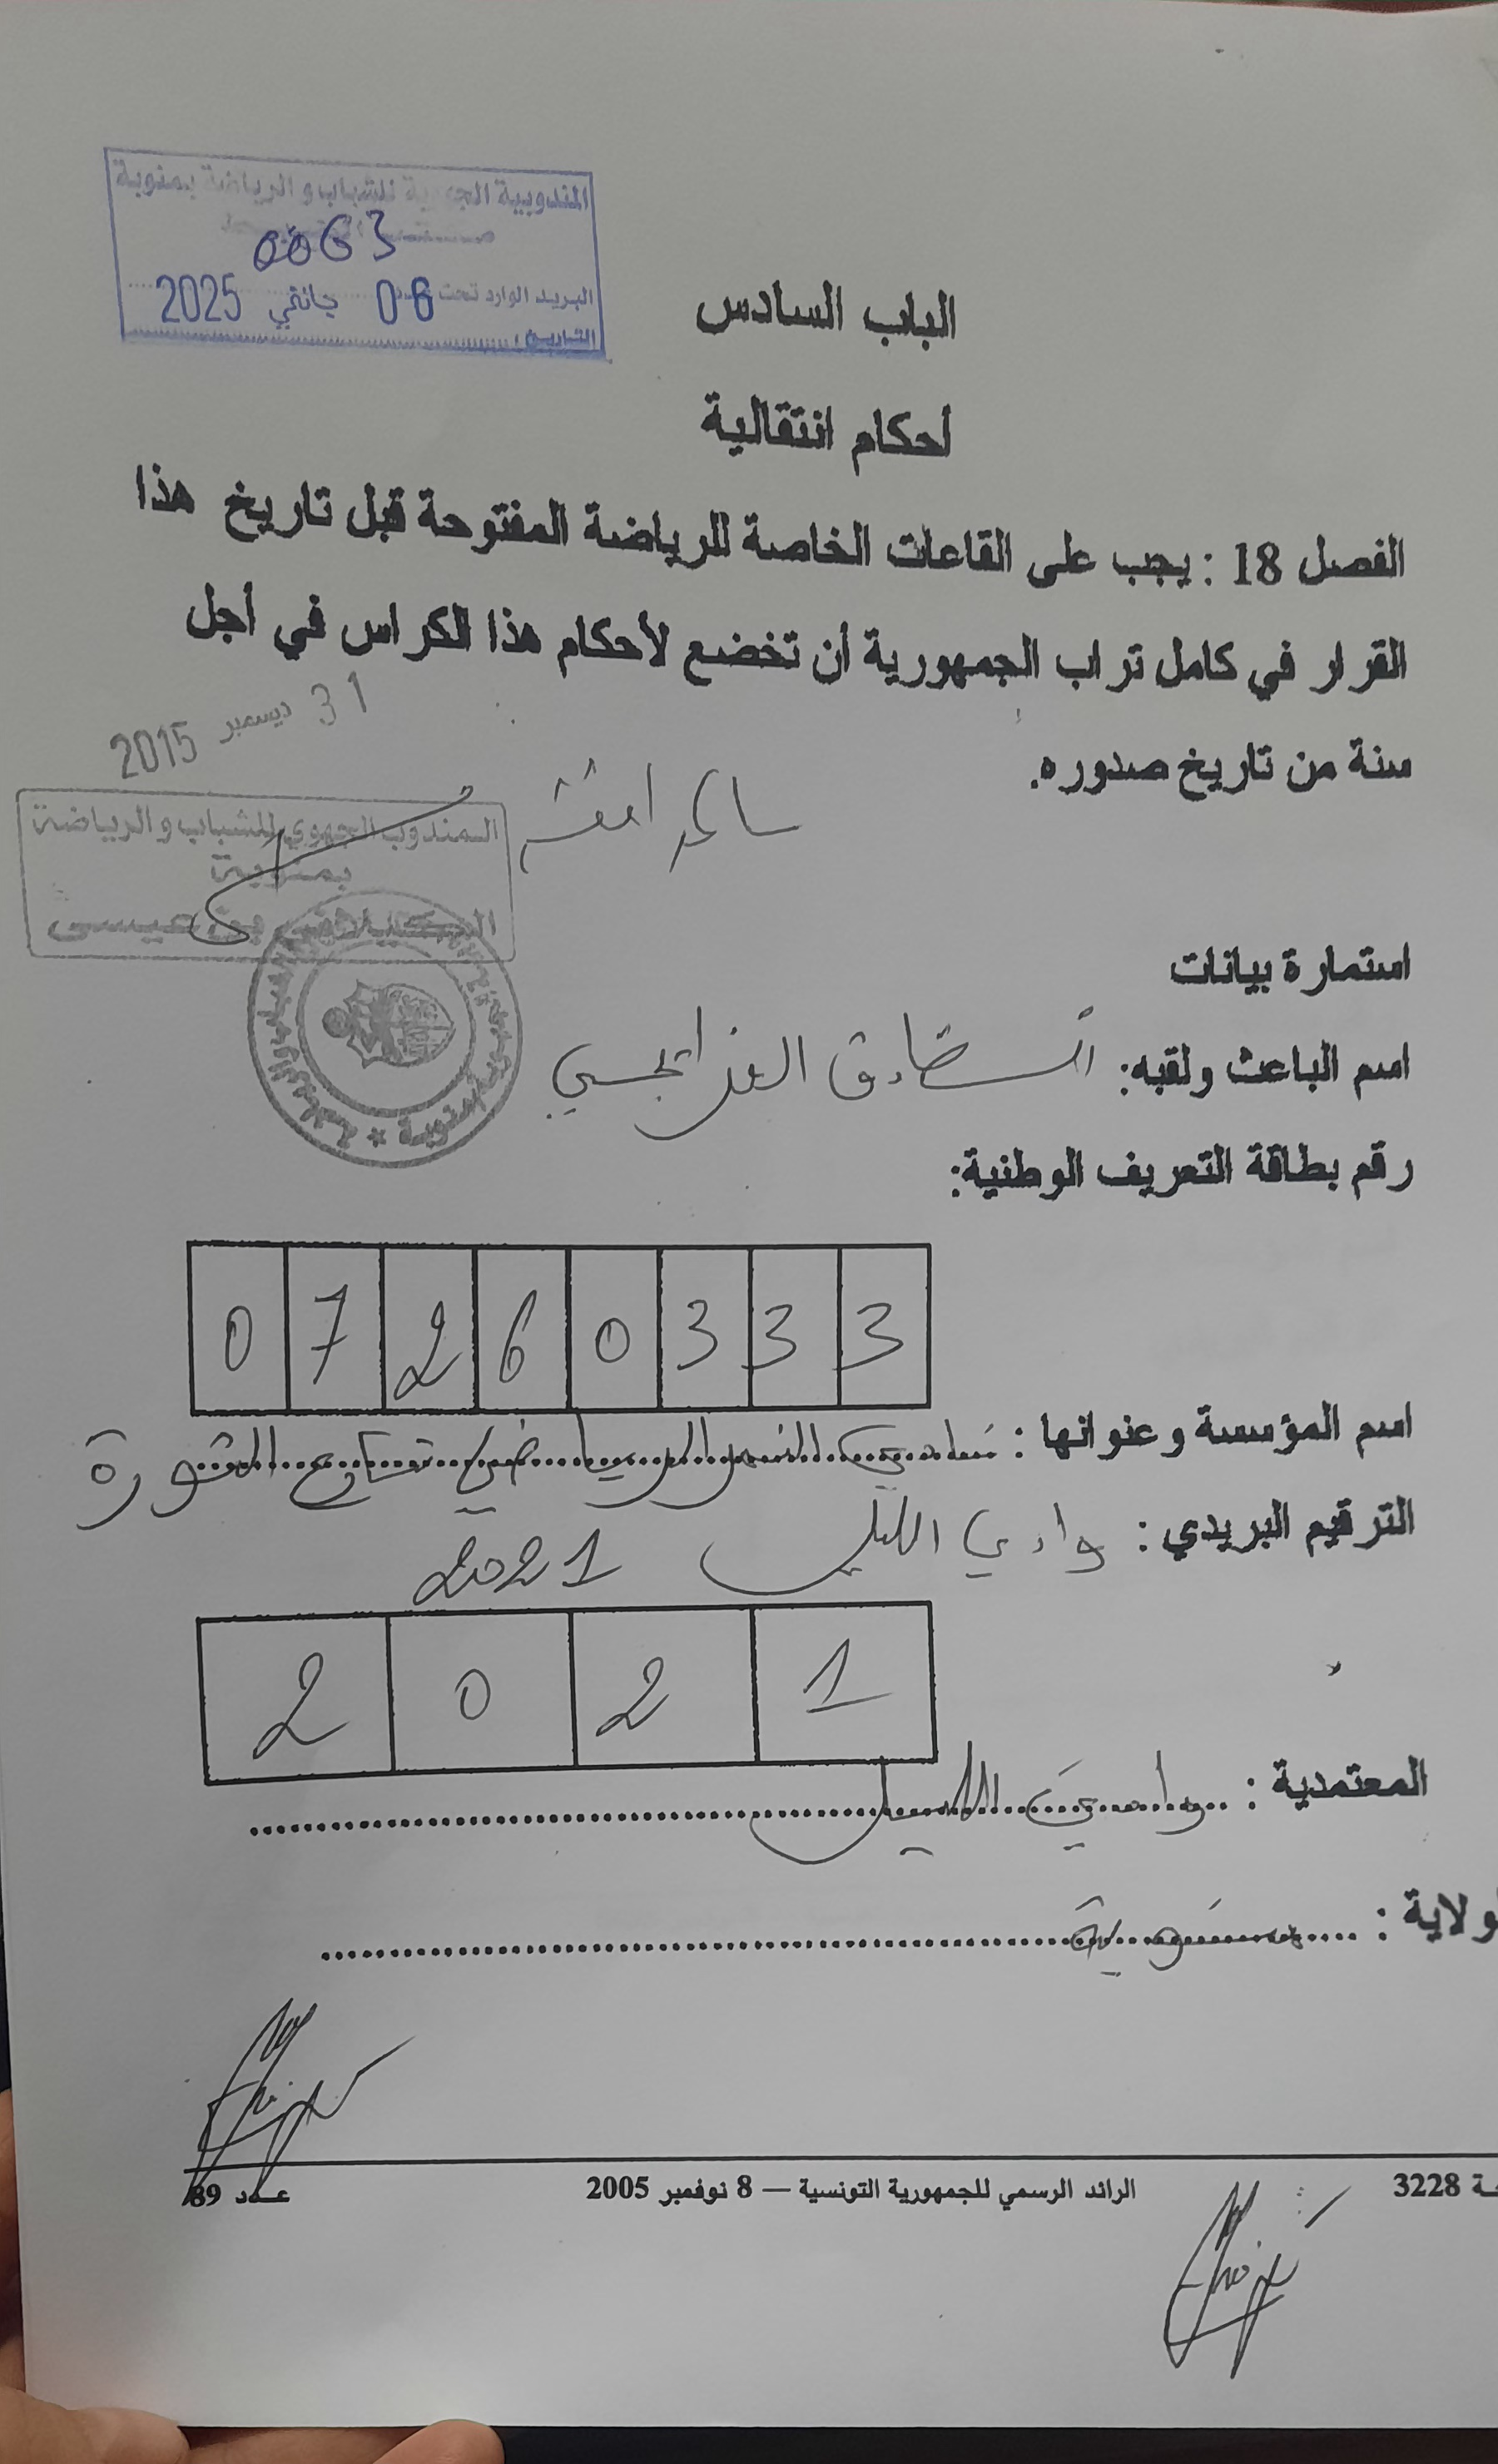 المندوبية الجهوية للشباب والرياضة بمنوبة
0063
البريد الوارد تحت عدد
06 جانفي 2025
التاريخ :
الباب السادس
أحكام انتقالية
الفصل 18 : يجب على القاعات الخاصة للرياضة المفتوحة قبل تاريخ هذا
القرار في كامل تراب الجمهورية أن تخضع لأحكام هذا الكراس في أجل
سنة من تاريخ صدوره.
31 ديسمبر 2015
المندوب الجهوي للشباب والرياضة
بمنوبة
بن عيسى
استمارة بيانات
اسم الباعث ولقبه: الصادق
رقم بطاقة التعريف الوطنية:
0 7 2 6 0 3 3 3
اسم المؤسسة وعنوانها : نادي النسر الرياضي شارع الثورة
الترقيم البريدي : وادي الليل 2021
2 0 2 1
المعتمدية : وادي الليل
ولاية : منوبة
عدد 89
الرائد الرسمي للجمهورية التونسية — 8 نوفمبر 2005
3228